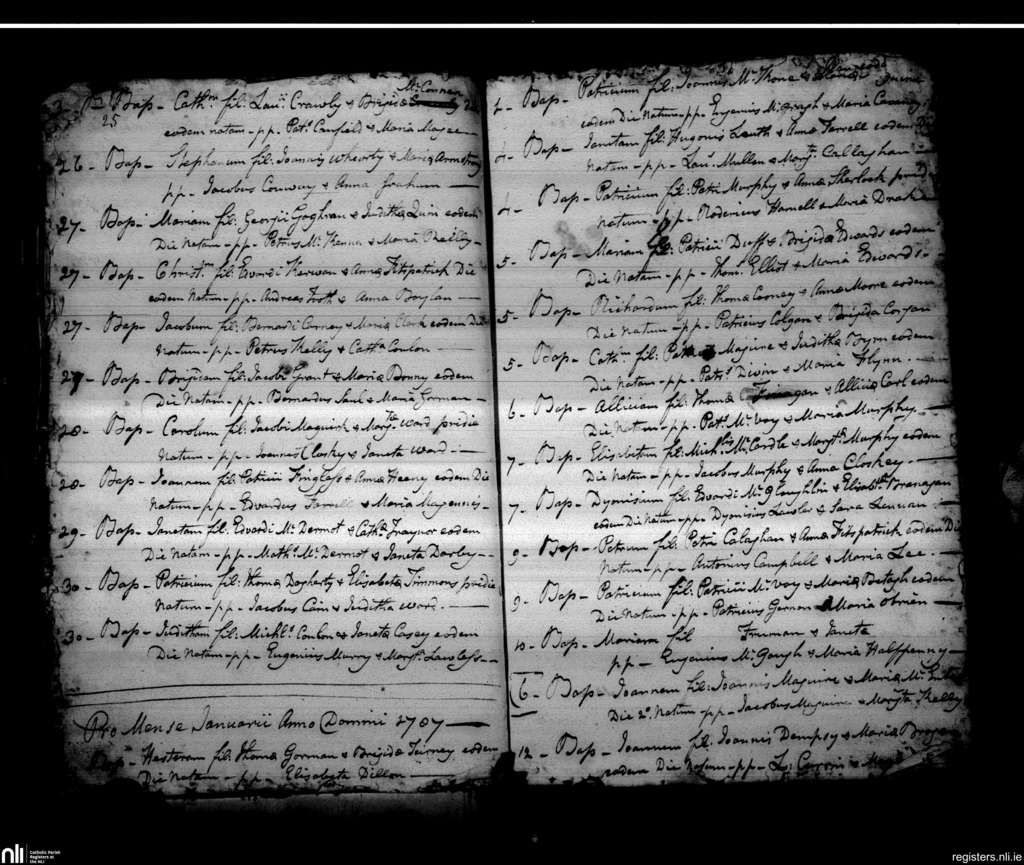 Bap- Cath.m fil: Lau.ii Crawly & Brigidæ
McConnor
25
eodem natam - pp. Pat.s Canfield & Maria Magee
26- Bap- Stephanum fil: Joannis Wherty & Mariæ Armstrong
pp- Jacobus Conway & Anna Graham
27- Bap- Mariam fil: Georgii Goghran & Judithæ Quin eodem
Die Natam - pp- Petrus McKenna & Maria Reilly-
27- Bap- Christ.m fil: Edvardi Kerwan & Annæ Fitzpatrick Die
eodem Natum - pp- Andreas & Anna Boylan
27- Bap- Jacobum fil: Bernardi Corney & Mariæ Clark eodem Die
Natum - pp- Petrus Kelly & Cath.a Conlon
27- Bap- Brigidam fil: Jacobi Grant & Mariæ eodem
Die Natam - pp- Bernardus Saul & Maria Gorman-
28- Bap- Carolum fil: Jacobi Maguire & Marg.tæ Ward pridie
Natum - pp- Joannes Closky & Janeta Ward-
28- Bap- Joannem fil: Patricii Finglass & Annæ Heany eodem Die
Natum - pp- Edvardus Farrell & Maria Magennis-
29- Bap- Janetam fil: Edvardi McDermot & Cath.æ Traynor eodem
Die Natam - pp- Math.s McDermot & Janeta Darby-
30- Bap- Patricium fil: Thomæ Dogherty & Elisabethæ Timmons pridie
Natum - pp- Jacobus Cain & Juditha Ward.
30- Bap- Juditham fil: Michl.s Conlon & Janetæ Casey eodem
Die Natam - pp- Eugenius Murry & Marg.ta Lawless-
Pro Mense Januarii Anno Domini 1787
Bap- Hesteram fil: Thomæ Gorman & Brigidæ Tierney eodem
Die Natam - pp- Elisabeta Dillon
Bap- Patricium fil: Joannis McKone &
eodem Die Natum - pp- Eugenius McGough & Maria
4- Bap- Janetam fil: Hugonis & Annæ Farrell eodem
Natam - pp- Lau.s Mullen & Marg.ta Callaghan
4- Bap- Patricium fil: Petri Murphy & Annæ Sherlock pridie
Natum - pp- Rodericus Hamell & Maria Drake
5- Bap- Mariam fil: Patricii Duff & Brigidæ Edwards eodem
Die Natam - pp- Thom.s Elliot & Maria Edwards
5- Bap- Richardum fil: Thomæ Cooney & Annæ Moore eodem
Die Natum - pp- Patricius Colgan & Brigida Corgan
5- Bap- Cath.m fil: Maguire & Judithæ Byrn eodem
Die Natam - pp- Pat.s Divin & Maria Flynn.
6- Bap- Alliciam fil: Thomæ Finegan & Alliciæ Carl eodem
Die Natam - pp- Pat.s McVoy & Maria Murphy.
7- Bap- Elisabetam fil: Mich.lis McCardle & Marg.tæ Murphy eodem
Die Natam - pp- Jacobus Murphy & Anna Closkey.
7- Bap- Dyonisium fil: Edvardi McGloughlin & Elisab.tæ Branagan
eodem Die Natum - pp- Dyonisius Lawlor & Sara Lennan.
9- Bap- Petrum fil: Petri Calaghan & Annæ Fitzpatrick eodem Die
Natum - pp- Antonius Campbell & Maria Lee.
9- Bap- Patricium fil: Patricii McVoy & Mariæ Betagh eodem
Die Natum - pp- Patricius Gernon & Maria Obrien
10- Bap- Mariam fil Freeman & Janetæ
pp- Eugenius McGough & Maria Halfpenny
6- Bap- Joannem fil: Joannis Maguire & Mariæ
Die 2o. Natum - pp- Jacobus Maguire & Marg.ta Kelly
12- Bap- Joannem fil: Joannis Dempsy & Mariæ
eodem Die Natum - pp-
nli
Catholic Parish
Registers at
the NLI
registers.nli.ie